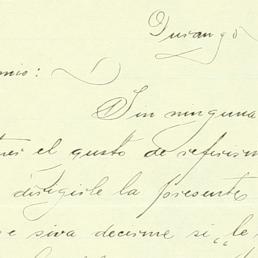 Durango
nio:
Sin ninguna
el gusto de referirm
dirigirle la presente
e siva decirme si "le